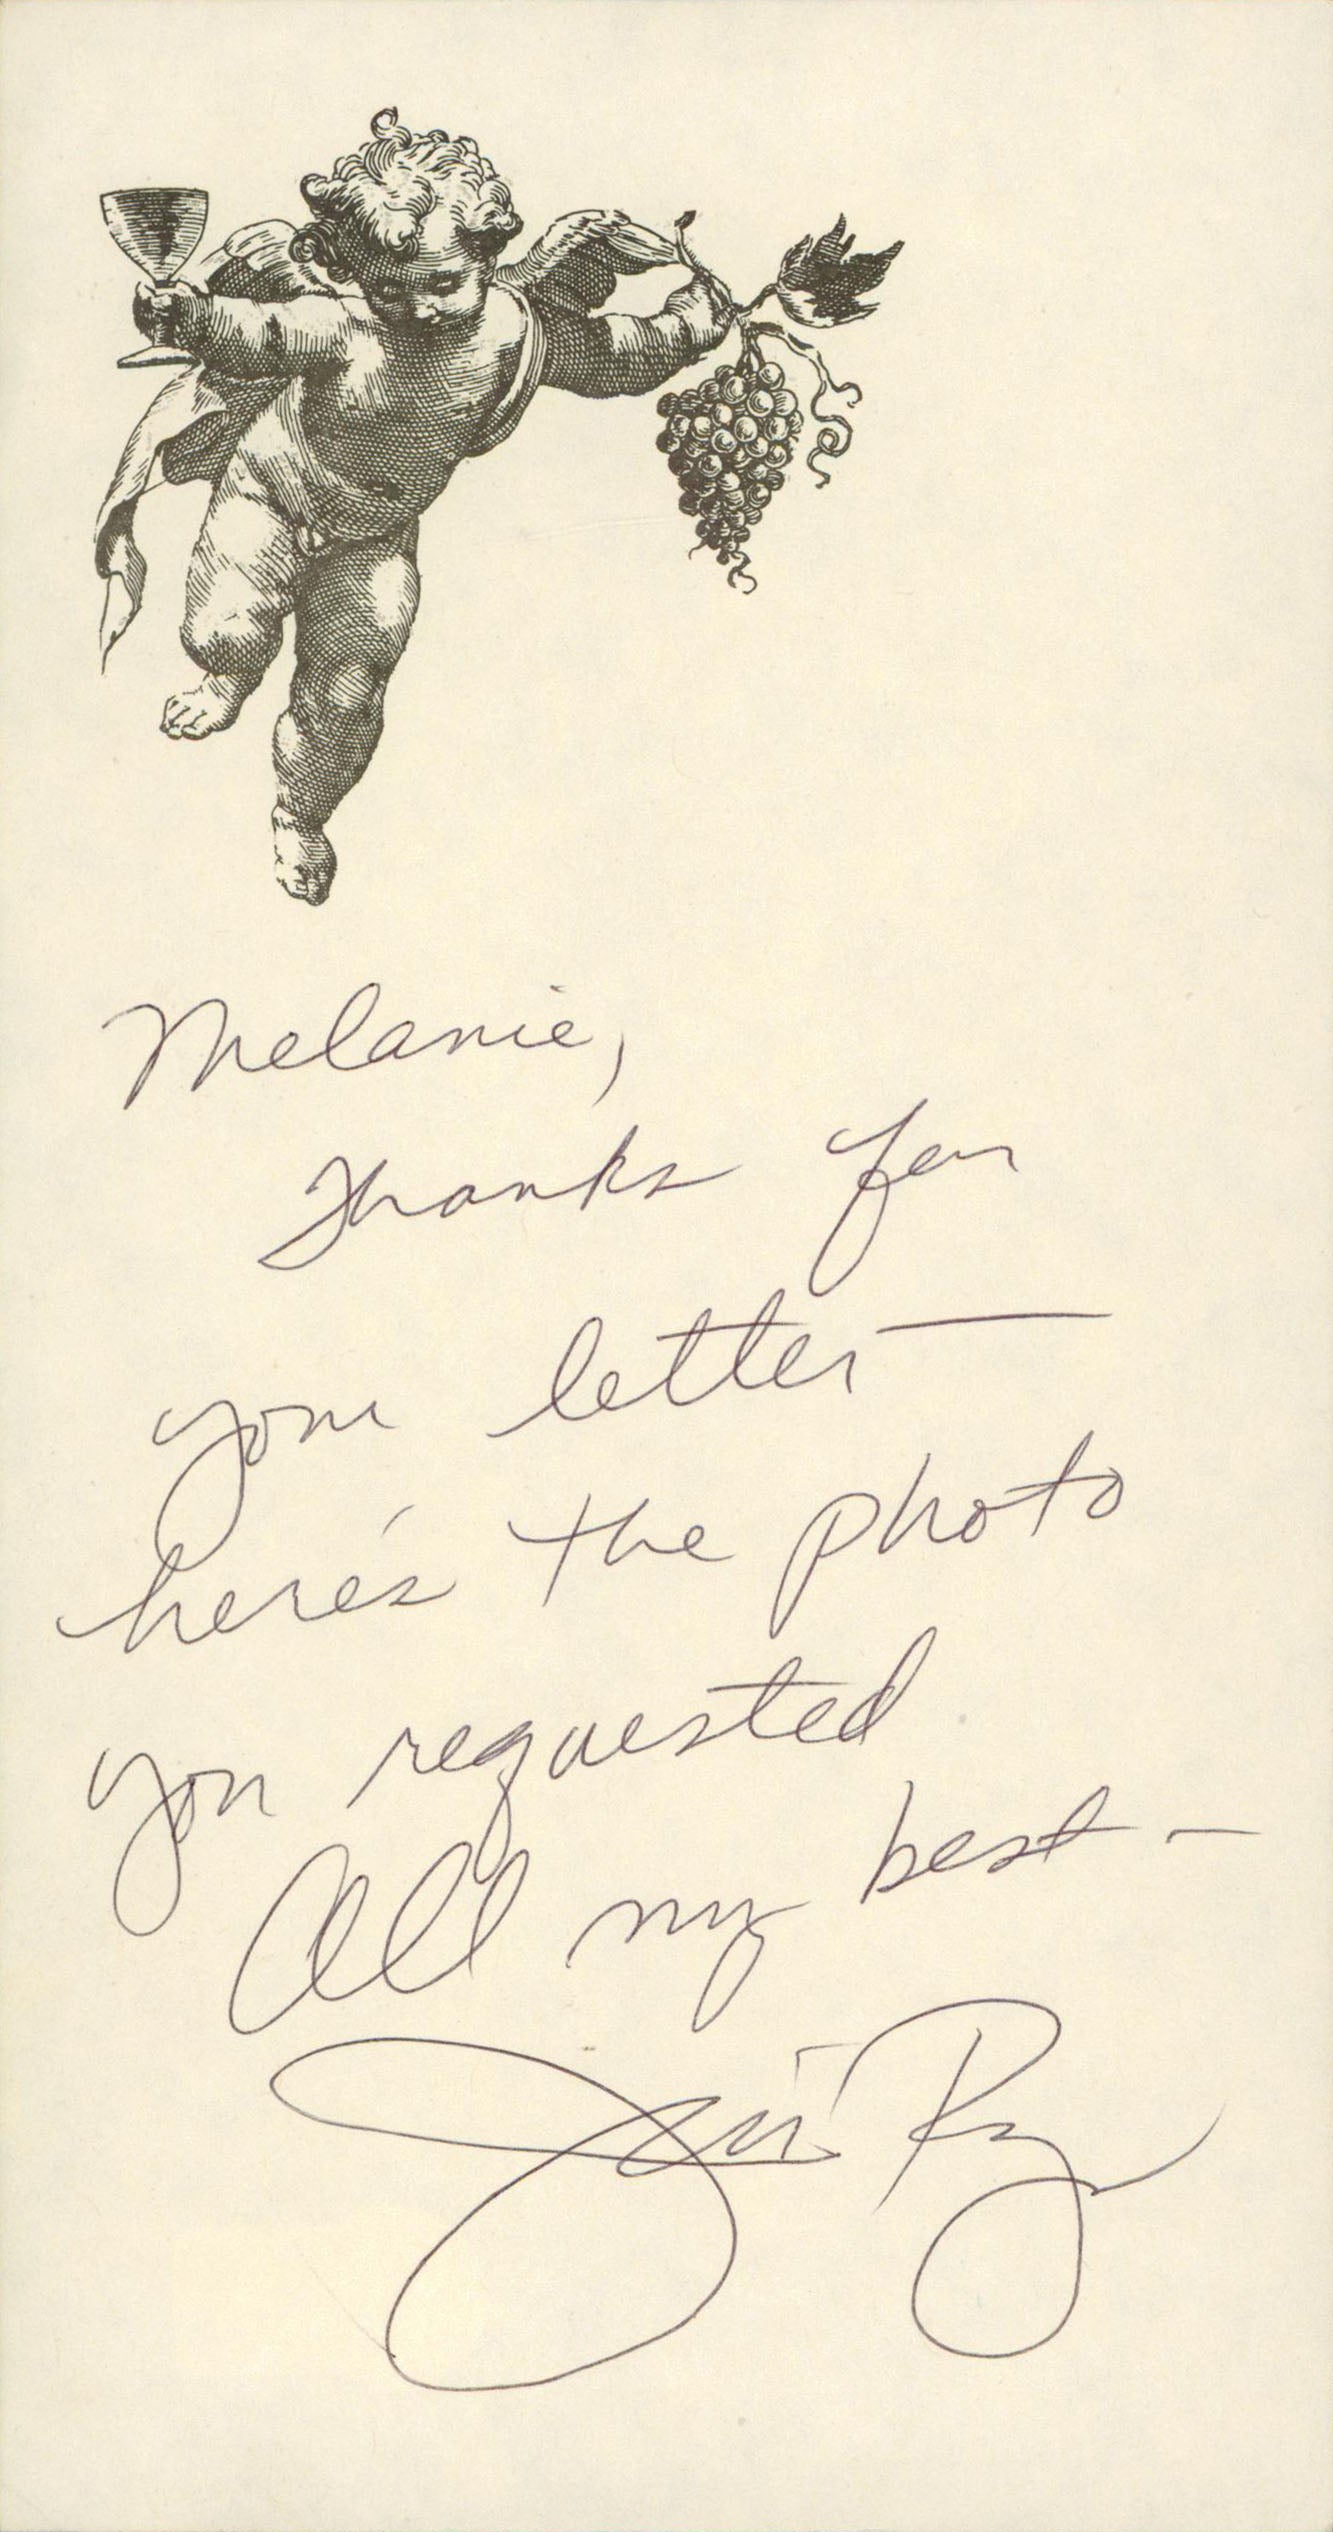 Melanie,
Thanks for
your letter —
here's the photo
you requested
All my best —